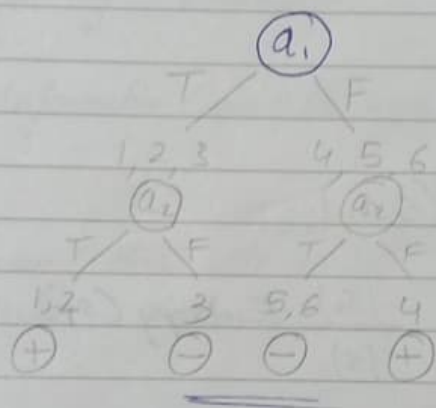 a₁
T F
1, 2, 3 4, 5, 6
a₂ a₂
T F T F
1,2 3 5,6 4
+ − − +